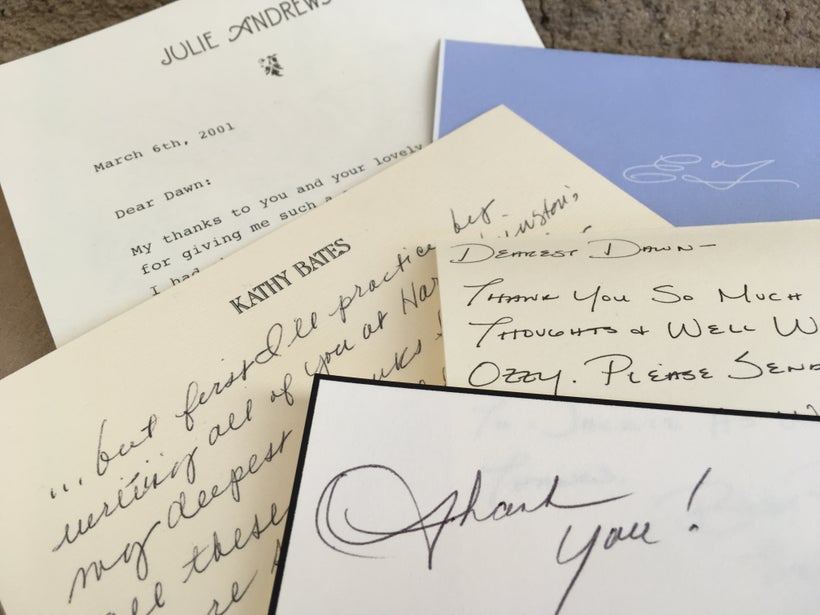 JULIE ANDREWS
March 6th, 2001
Dear Dawn:
My thanks to you and your lovely
for giving me such a
I had
KATHY BATES
...but first I'll practice by
writing all of you at Har Winston's
my deepest
all these
re
DEAREST DAWN-
THANK YOU SO MUCH
THOUGHTS & WELL W
OZZY. PLEASE SEND
Thank
you!